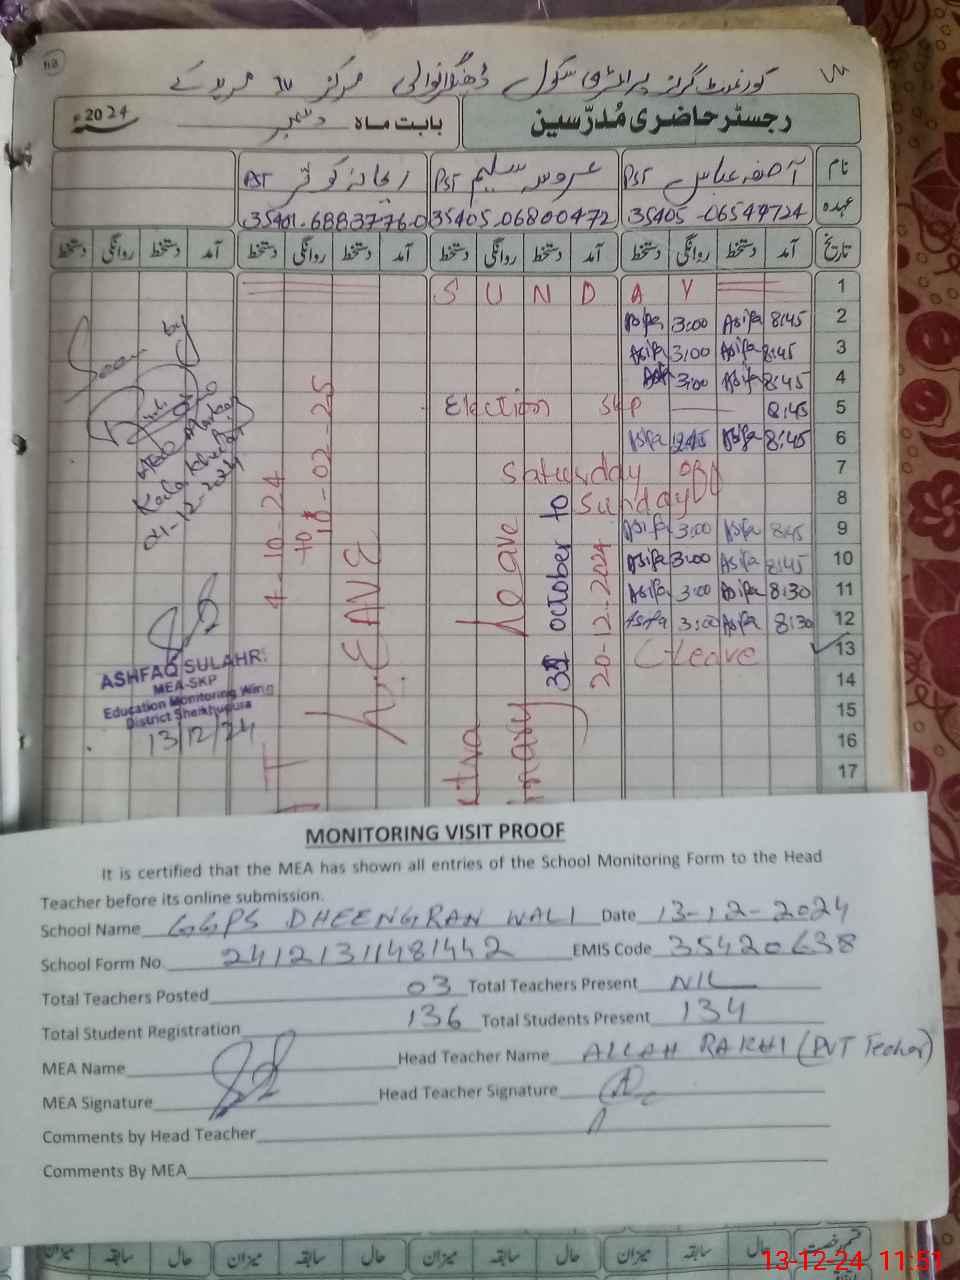 گورنمنٹ گرلز پرائمری سکول ڈھینگرانوالی مرکز مریدکے
رجسٹر حاضری مُدرّسین
بابت ماہ دسمبر 2024ء
نام آصفہ عباس PST عروسہ سلیم PST ریحانہ کوثر PST
عہدہ 35405-06549724 35405-06800472 35401-6883776-0
تاریخ آمد دستخط روانگی دستخط آمد دستخط روانگی دستخط آمد دستخط روانگی دستخط آمد دستخط روانگی دستخط
S U N D A Y 1
Asifa 3:00 Asifa 8:45 2
Asifa 3:00 Asifa 8:45 3
3:00 Asifa 8:45 4
Election SKP 8:45 5
Asifa 12:45 Asifa 8:45 6
Saturday OFF 7
Sunday 8
Asifa 3:00 Asifa 8:45 9
Asifa 3:00 Asifa 8:45 10
Asifa 3:00 Asifa 8:30 11
Asifa 3:00 Asifa 8:30 12
C leave 13
14
15
16
17
Seen by
04-12-2024
4-10-24
to
10-02-25
LEAVE
leave
31 october to
20-12-2024
ASHFAQ SULAHRI
MEA-SKP
Education Monitoring Wing
District Sheikhupura
13/12/24
MONITORING VISIT PROOF
It is certified that the MEA has shown all entries of the School Monitoring Form to the Head
Teacher before its online submission.
School Name GGPS DHEENGRAN WALI Date 13-12-2024
School Form No. 24121311481442 EMIS Code 35420638
Total Teachers Posted 03 Total Teachers Present NIL
Total Student Registration 136 Total Students Present 134
MEA Name Head Teacher Name ALLAH RAKHI (PVT Teacher)
MEA Signature Head Teacher Signature
Comments by Head Teacher
Comments By MEA
قسم رخصت حال سابقہ میزان حال سابقہ میزان حال سابقہ میزان حال سابقہ میزان
13-12-24 11:51